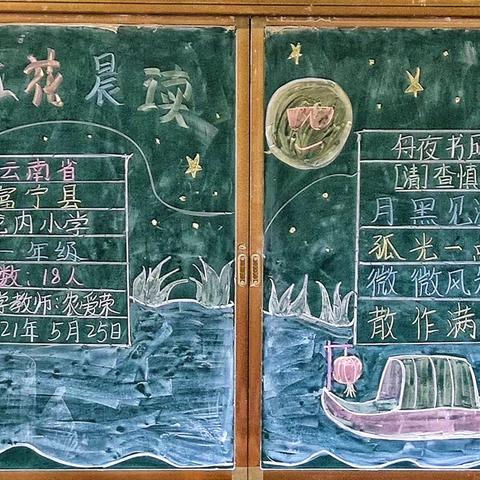 花晨读
云南省
富宁县
内小学
一年级
数：18人
教师：农爱荣
21年5月25日
舟夜书
[清]查慎
月黑见
孤光一
微微风
散作满